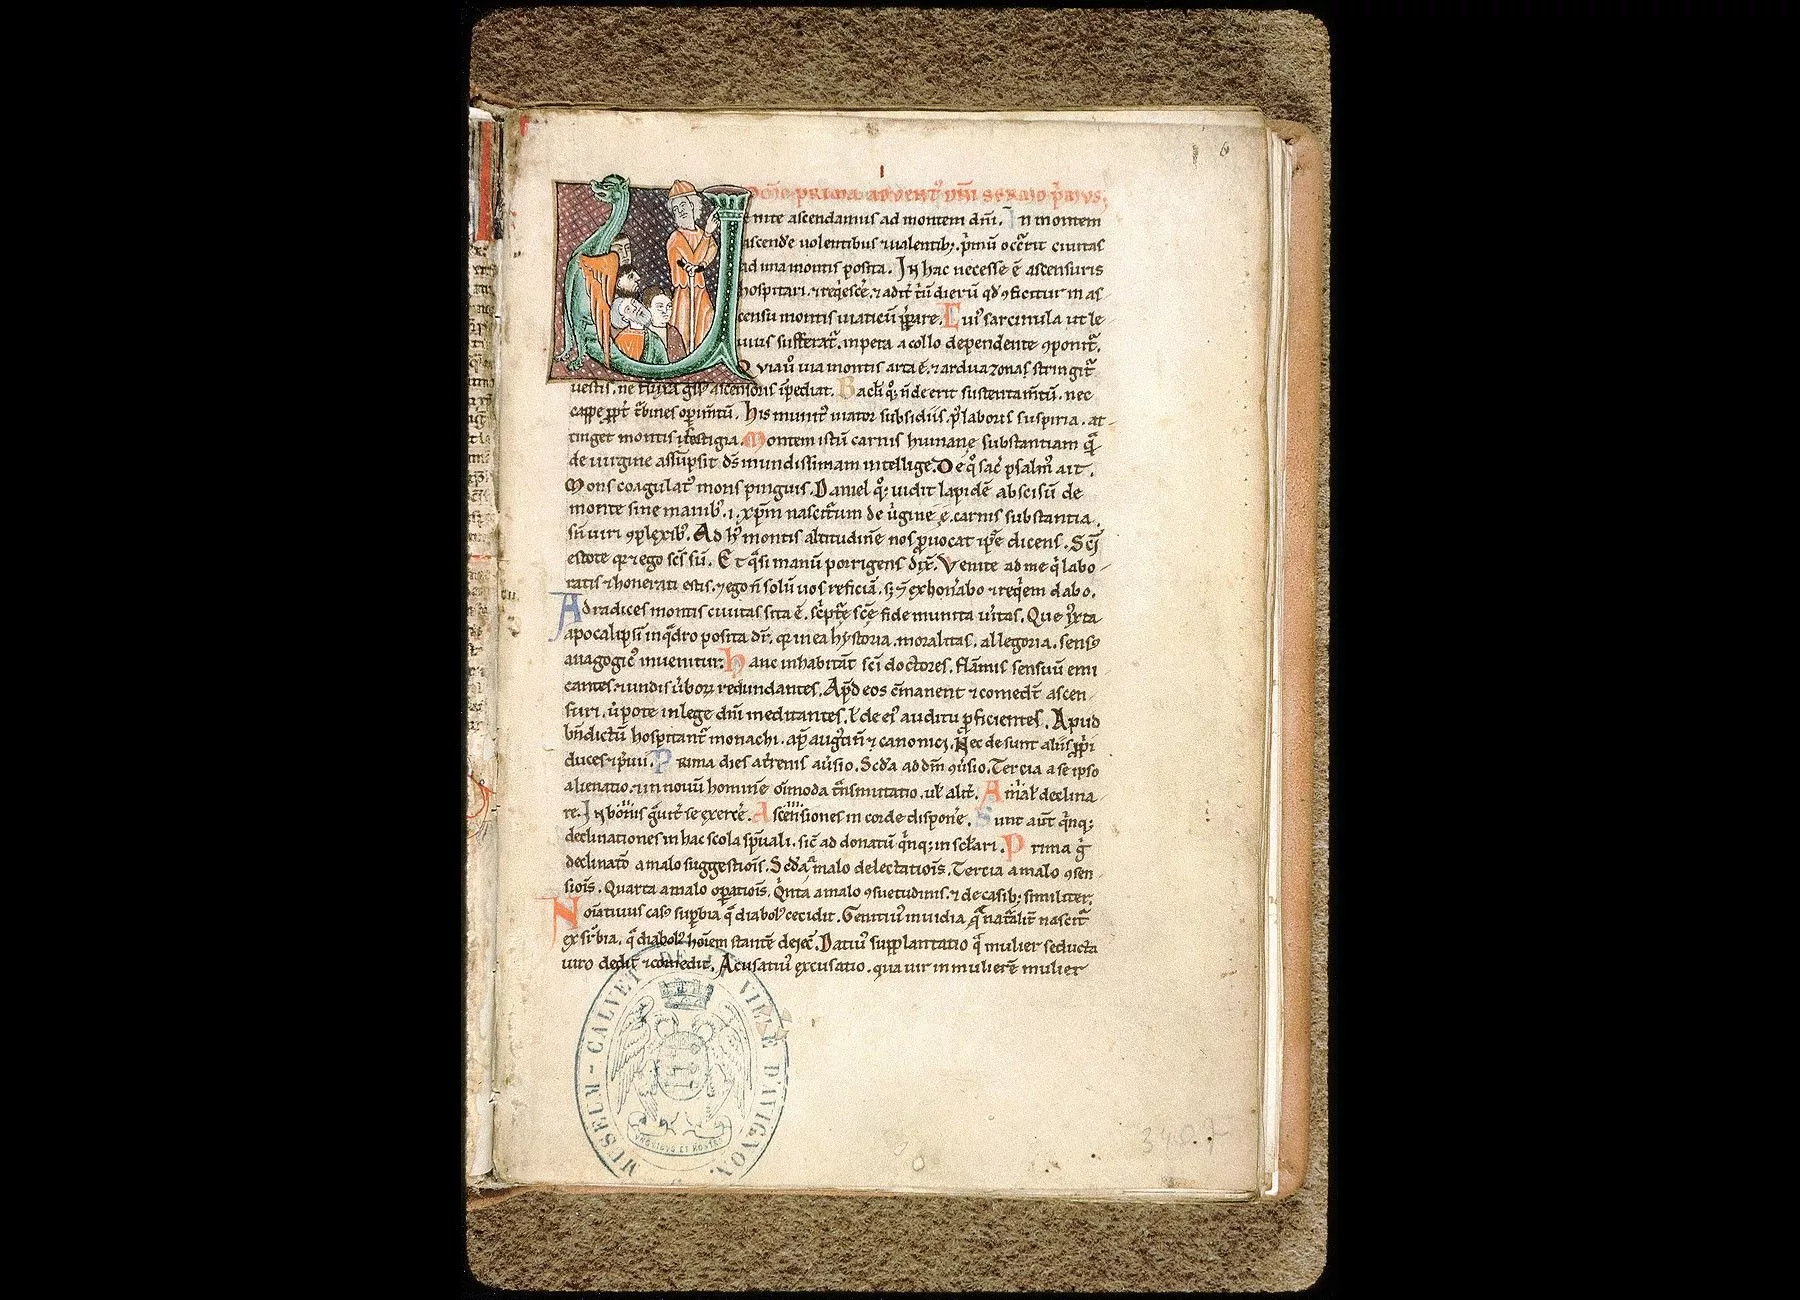 6
I
D̄nica prima adventꝰ dn̄i sermo p̄mus;
Venite ascendamus ad montem dn̄i. In montem
ascende uolentibus ⁊ ualentibꝫ. p̄mū occ̄rit ciuitas
ad ima montis posita. In hac necesse ē ascensuris
hospitari. ⁊ ad t̄ū dierū qd̄ ꝯficitur in as-
censu montis uiaticū p̄pare. Euiꝰ sarcinula ut le-
uius sufferat᷑. in pera a collo dependente ꝯponit᷑.
uia montis arta ē. ⁊ ardua zonaſ stringit᷑
uestis. ne fluxa ascensoris īpediat. Baclꝰ qꝫ n̄ deerit sustentam̄tū. nec
cappe ꝓpt᷑ t᷑bines operim̄tū. His munitꝰ uiator subsidiis. p̉ laboris suspiria. at-
tinget montis fastigia. Montem istū carnis humanę substantiam q̄
de uirgine assūpsit d̄s mundissimam intellige. De q̊ sac̉ psalm̉ ait.
Mons coagulatꝰ mons pinguis. Daniel qꝫ uidit lapidē abscisū de
monte sine manibꝰ. .i. xp̄m nasciturum de ủgine ę carnis substantia.
sn̄ uiri ꝯplexibꝰ. Ad hꝰ montis altitudinē nos ꝓuocat ip̄e dicens. Sc̄i
estote qꝛ ⁊ ego sc̄s sū. Et q̄si manū porrigens dix̄. Venite ad me q̉ labo-
ratis ⁊ honerati estis. ⁊ ego n̄ solū uos reficiā. sꝫ ⁊ exhon̉abo ⁊ reqīem dabo.
Ad radices montis ciuitas sita ē. sc̉pt᷑ę sc̄ę fide munita ủitas. Que iuxta
apocalipsī in q̄dro posita dr̄. qꝛ in ea hystoria. moralitas. allegoria. sensꝰ
anagogicꝰ inuenitur. Hanc inhabitāt sc̄i doctores. flāmis sensuū emi-
cantes. ⁊ undis ủboꝝ redundantes. Ap̄d eos c̄manent ⁊ comedt̄ ascen-
suri. ủpote in lege dn̄i meditantes. ł de eiꝰ auditu ꝓficientes. Apud
bn̄dictū hospitant᷑ monachi. ap̄ augtin̄ ⁊ canonici. Nec desunt aliis ꝓpi
duces ⁊ p̉uii. Prima dies at̉renis aủsio. Sc̄da ad dm̄ ꝯủsio. Tercia a se ipso
alienatio. ⁊ in nouū hominē oīmoda t̄nsmutatio. ul̉ alit̉. A malo declina-
re. In bonis se exerce. Ascensiones in corde dispon̉e. Sunt aūt q̉nqꝫ
declinationes in hac scola sp̄uali. sic̄ ad donatū q̉nqꝫ in sc̄lari. Prima g̉
declinatō a malo suggestiōis. Sc̄da a malo delectatiōis. Tercia a malo ꝯsen-
siōis. Quarta a malo oꝑatiōis. Q̉nta a malo ꝯsuetudinis. ⁊ de casibꝫ similiter.
Noīatiuus casꝰ suꝑbia q̄ diabolꝰ cecidit. Genitiuꝰ inuidia. nascit᷑
ex suꝑbia. q̄ diabolꝰ hoīem stantē deiec̄. Datiuꝰ supplantatio q̄ mulier seducta
uiro dedit ⁊ comedit. Acusatiuꝰ excusatio. qua uir in mulierē mulier
MUSEUM-CALVET DE LA VILLE D'AVIGNON.
UNGUIBUS ET ROSTRO
3407